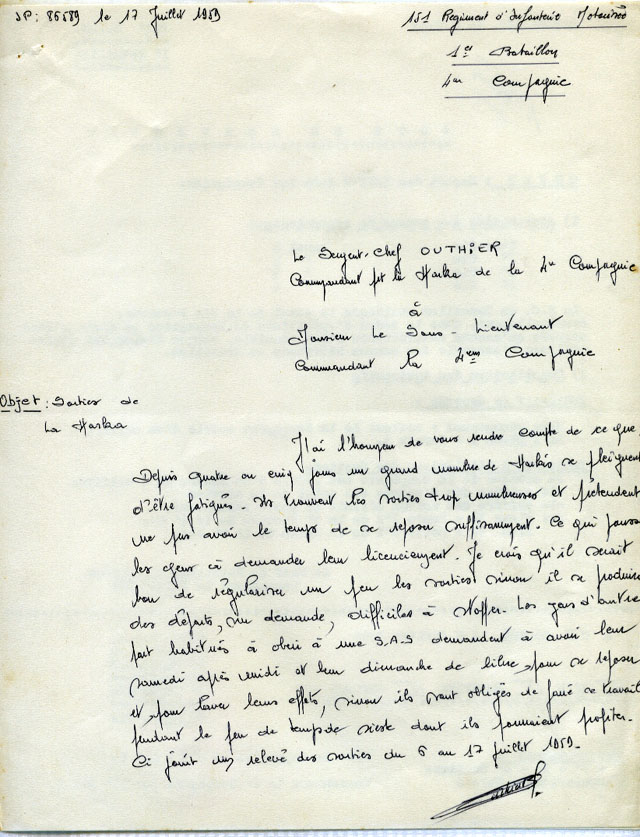 SP: 86589 le 17 Juillet 1959
151 Regiment d'Infanterie Motorisée
1er Bataillon
4em Compagnie
Le Sergent-Chef OUTHIER
Commandant la Harka de la 4em Compagnie
à
Monsieur Le Sous-Lieutenant
Commandant la 4eme Compagnie
Objet : Sorties de
La Harka
J'ai l'honneur de vous rendre compte de ce que
Depuis quatre ou cinq jours un grand nombre de Harkis se pleignent
d'être fatigués. Ils trouvent les sorties trop nombreuses et prétendent
ne pas avoir le temps de se reposer suffisamment. Ce qui pousse
les gens à demander leur licenciement. Je crois qu'il serait
bon de régulariser un peu les sorties sinon il se produira
des départs, sur demande, difficiles à stopper. Les gens d'autre
part habitués à obeir à une S.A.S demandent à avoir leur
samedi après midi et leur dimanche de libre, pour se reposer
et pour laver leurs effets, sinon ils sont obligés de faire ce travail
pendant le peu de temps de sieste dont ils pourraient profiter.
Ci joint un relevé des sorties du 6 au 17 juillet 1959.